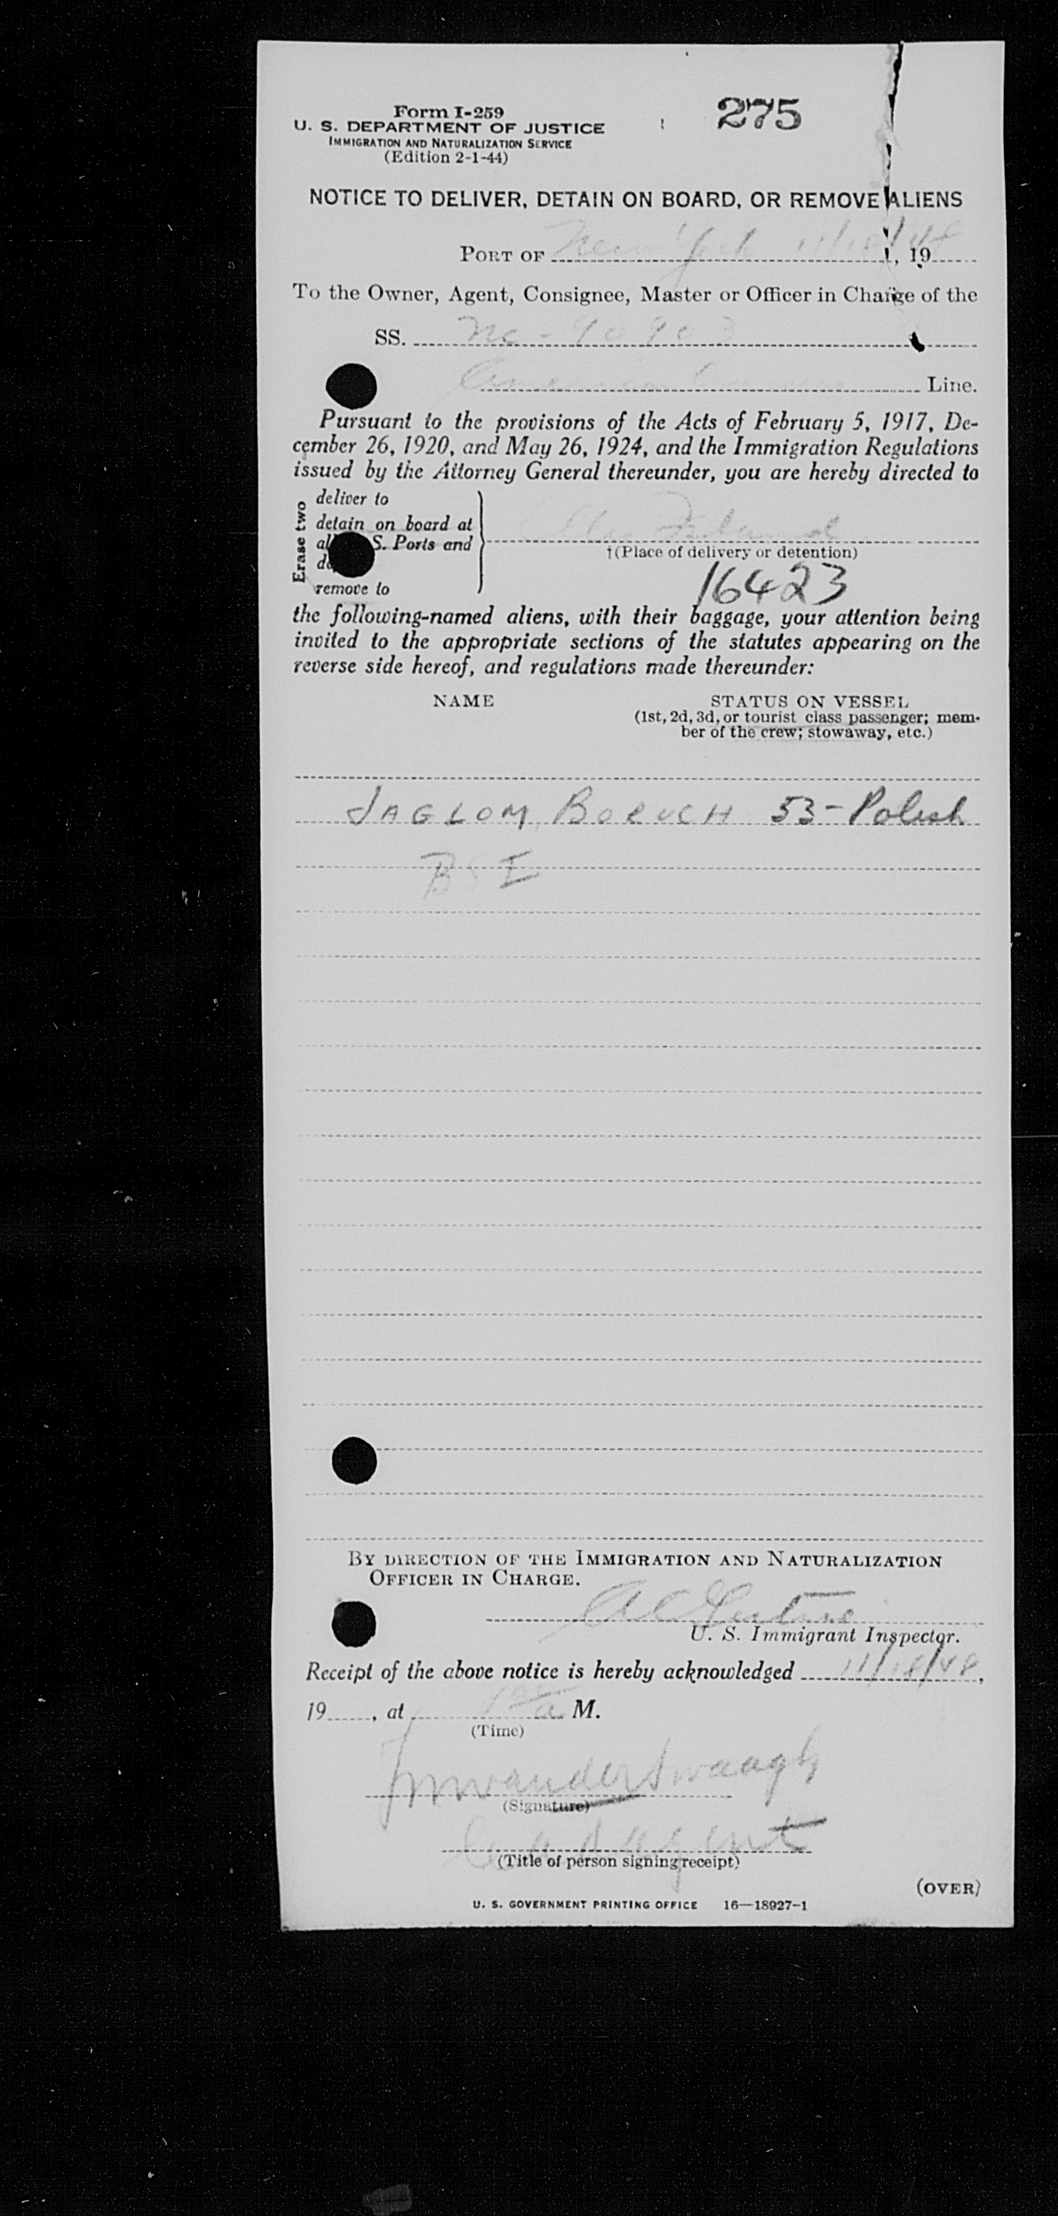 Form I-259
275
U. S. DEPARTMENT OF JUSTICE
IMMIGRATION AND NATURALIZATION SERVICE
(Edition 2-1-44)
NOTICE TO DELIVER, DETAIN ON BOARD, OR REMOVE ALIENS
PORT OF New York 11/18/48, 19
To the Owner, Agent, Consignee, Master or Officer in Charge of the
SS. NC-90903
American Line.
Pursuant to the provisions of the Acts of February 5, 1917, De-
cember 26, 1920, and May 26, 1924, and the Immigration Regulations
issued by the Attorney General thereunder, you are hereby directed to
Erase two
deliver to
detain on board at
S. Ports and
remove to
Ellis Island
†(Place of delivery or detention)
16423
the following-named aliens, with their baggage, your attention being
invited to the appropriate sections of the statutes appearing on the
reverse side hereof, and regulations made thereunder:
NAME STATUS ON VESSEL
(1st, 2d, 3d, or tourist class passenger; mem-
ber of the crew; stowaway, etc.)
JAGLOM, BORUCH 53-Polish
BSI
BY DIRECTION OF THE IMMIGRATION AND NATURALIZATION
OFFICER IN CHARGE.
U. S. Immigrant Inspector.
Receipt of the above notice is hereby acknowledged 11/18/48,
19, at a M.
(Time)
(Signature)
agent
(Title of person signing receipt)
(OVER)
U. S. GOVERNMENT PRINTING OFFICE 16—18927-1